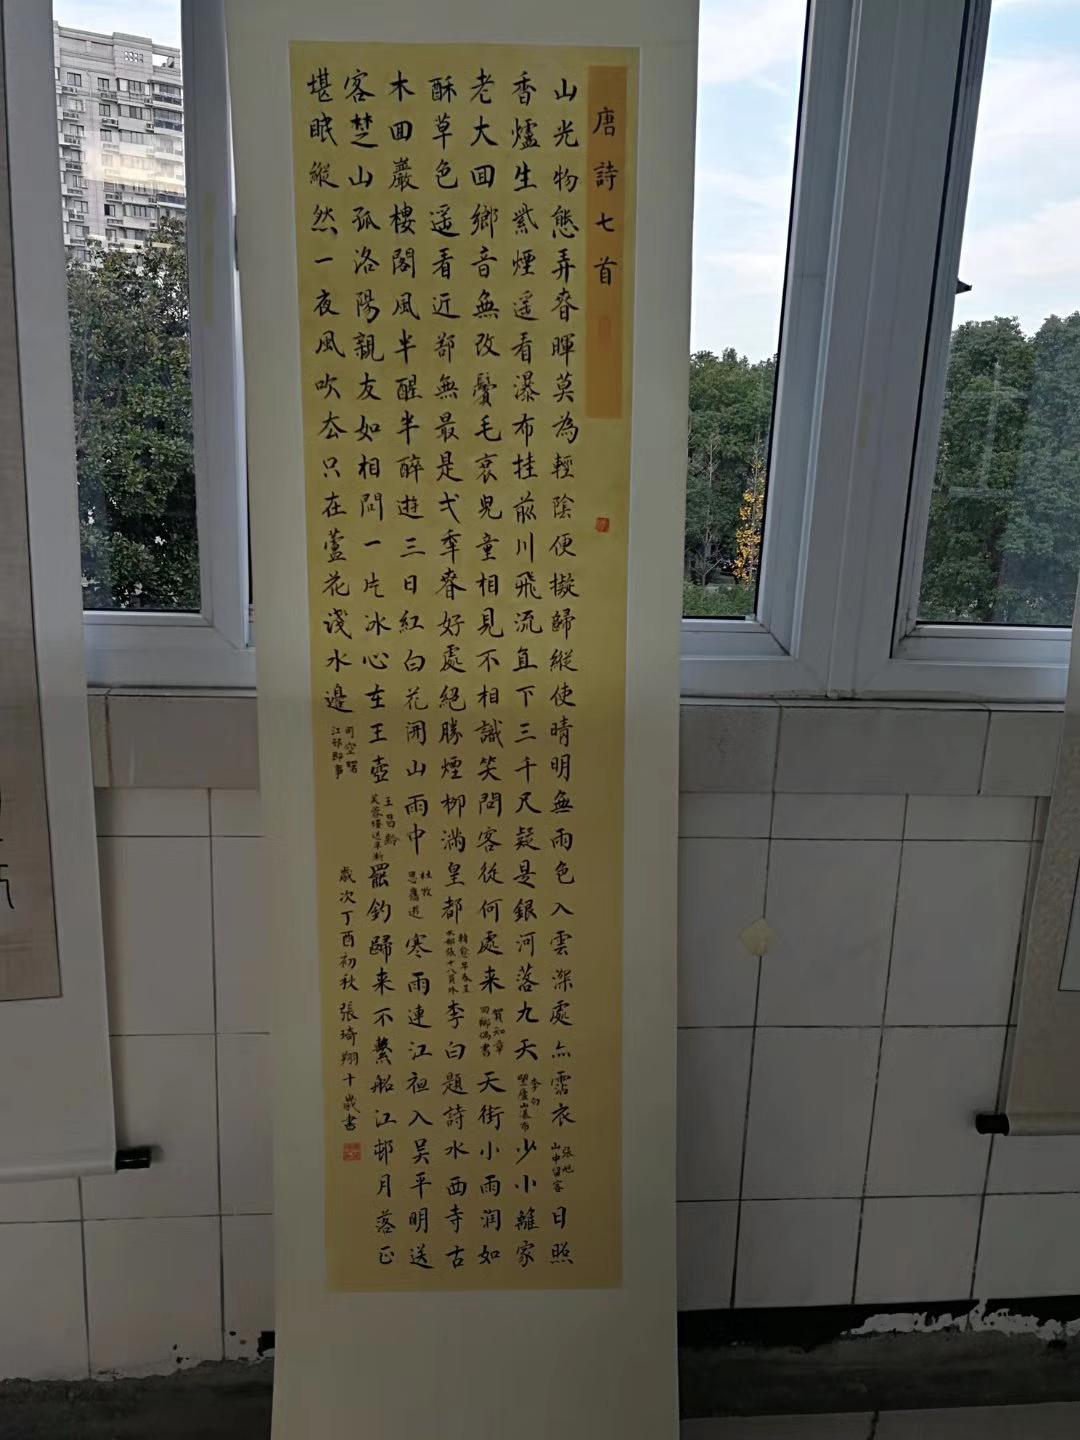 唐詩七首
山光物態弄春暉莫為輕陰便擬歸縱使晴明無雨色入雲深處亦霑衣
張旭
山中留客
日照
香爐生紫煙遥看瀑布挂前川飛流直下三千尺疑是銀河落九天
李白
望廬山瀑布
少小離家
老大回鄉音無改鬢毛衰兒童相見不相識笑問客從何處来
賀知章
回鄉偶書
天街小雨润如
酥草色遥看近郤無最是弌年春好處絕勝煙柳滿皇都
韓愈早春呈
水部張十八員外
李白題詩水西寺古
木回巖樓閣風半醒半醉遊三日紅白花開山雨中
杜牧
思舊遊
寒雨連江亱入吴平明送
客楚山孤洛陽親友如相問一片冰心在玉壺
王昌齡
芙蓉樓送辛漸
罷釣歸来不繫船江邨月落正
堪眠縱然一夜風吹去只在蘆花淺水邊
司空曙
江邨即事
歲次丁酉初秋張琦翔十歲書